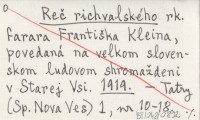 Reč richvalského rk.
farara Františka Kleina,
povedaná na velkom sloven-
skom ludovom shromaždení
v Starej Vsi. 1919. – Tatry
(Sp. Nova Ves) 1, nr. 10-18.